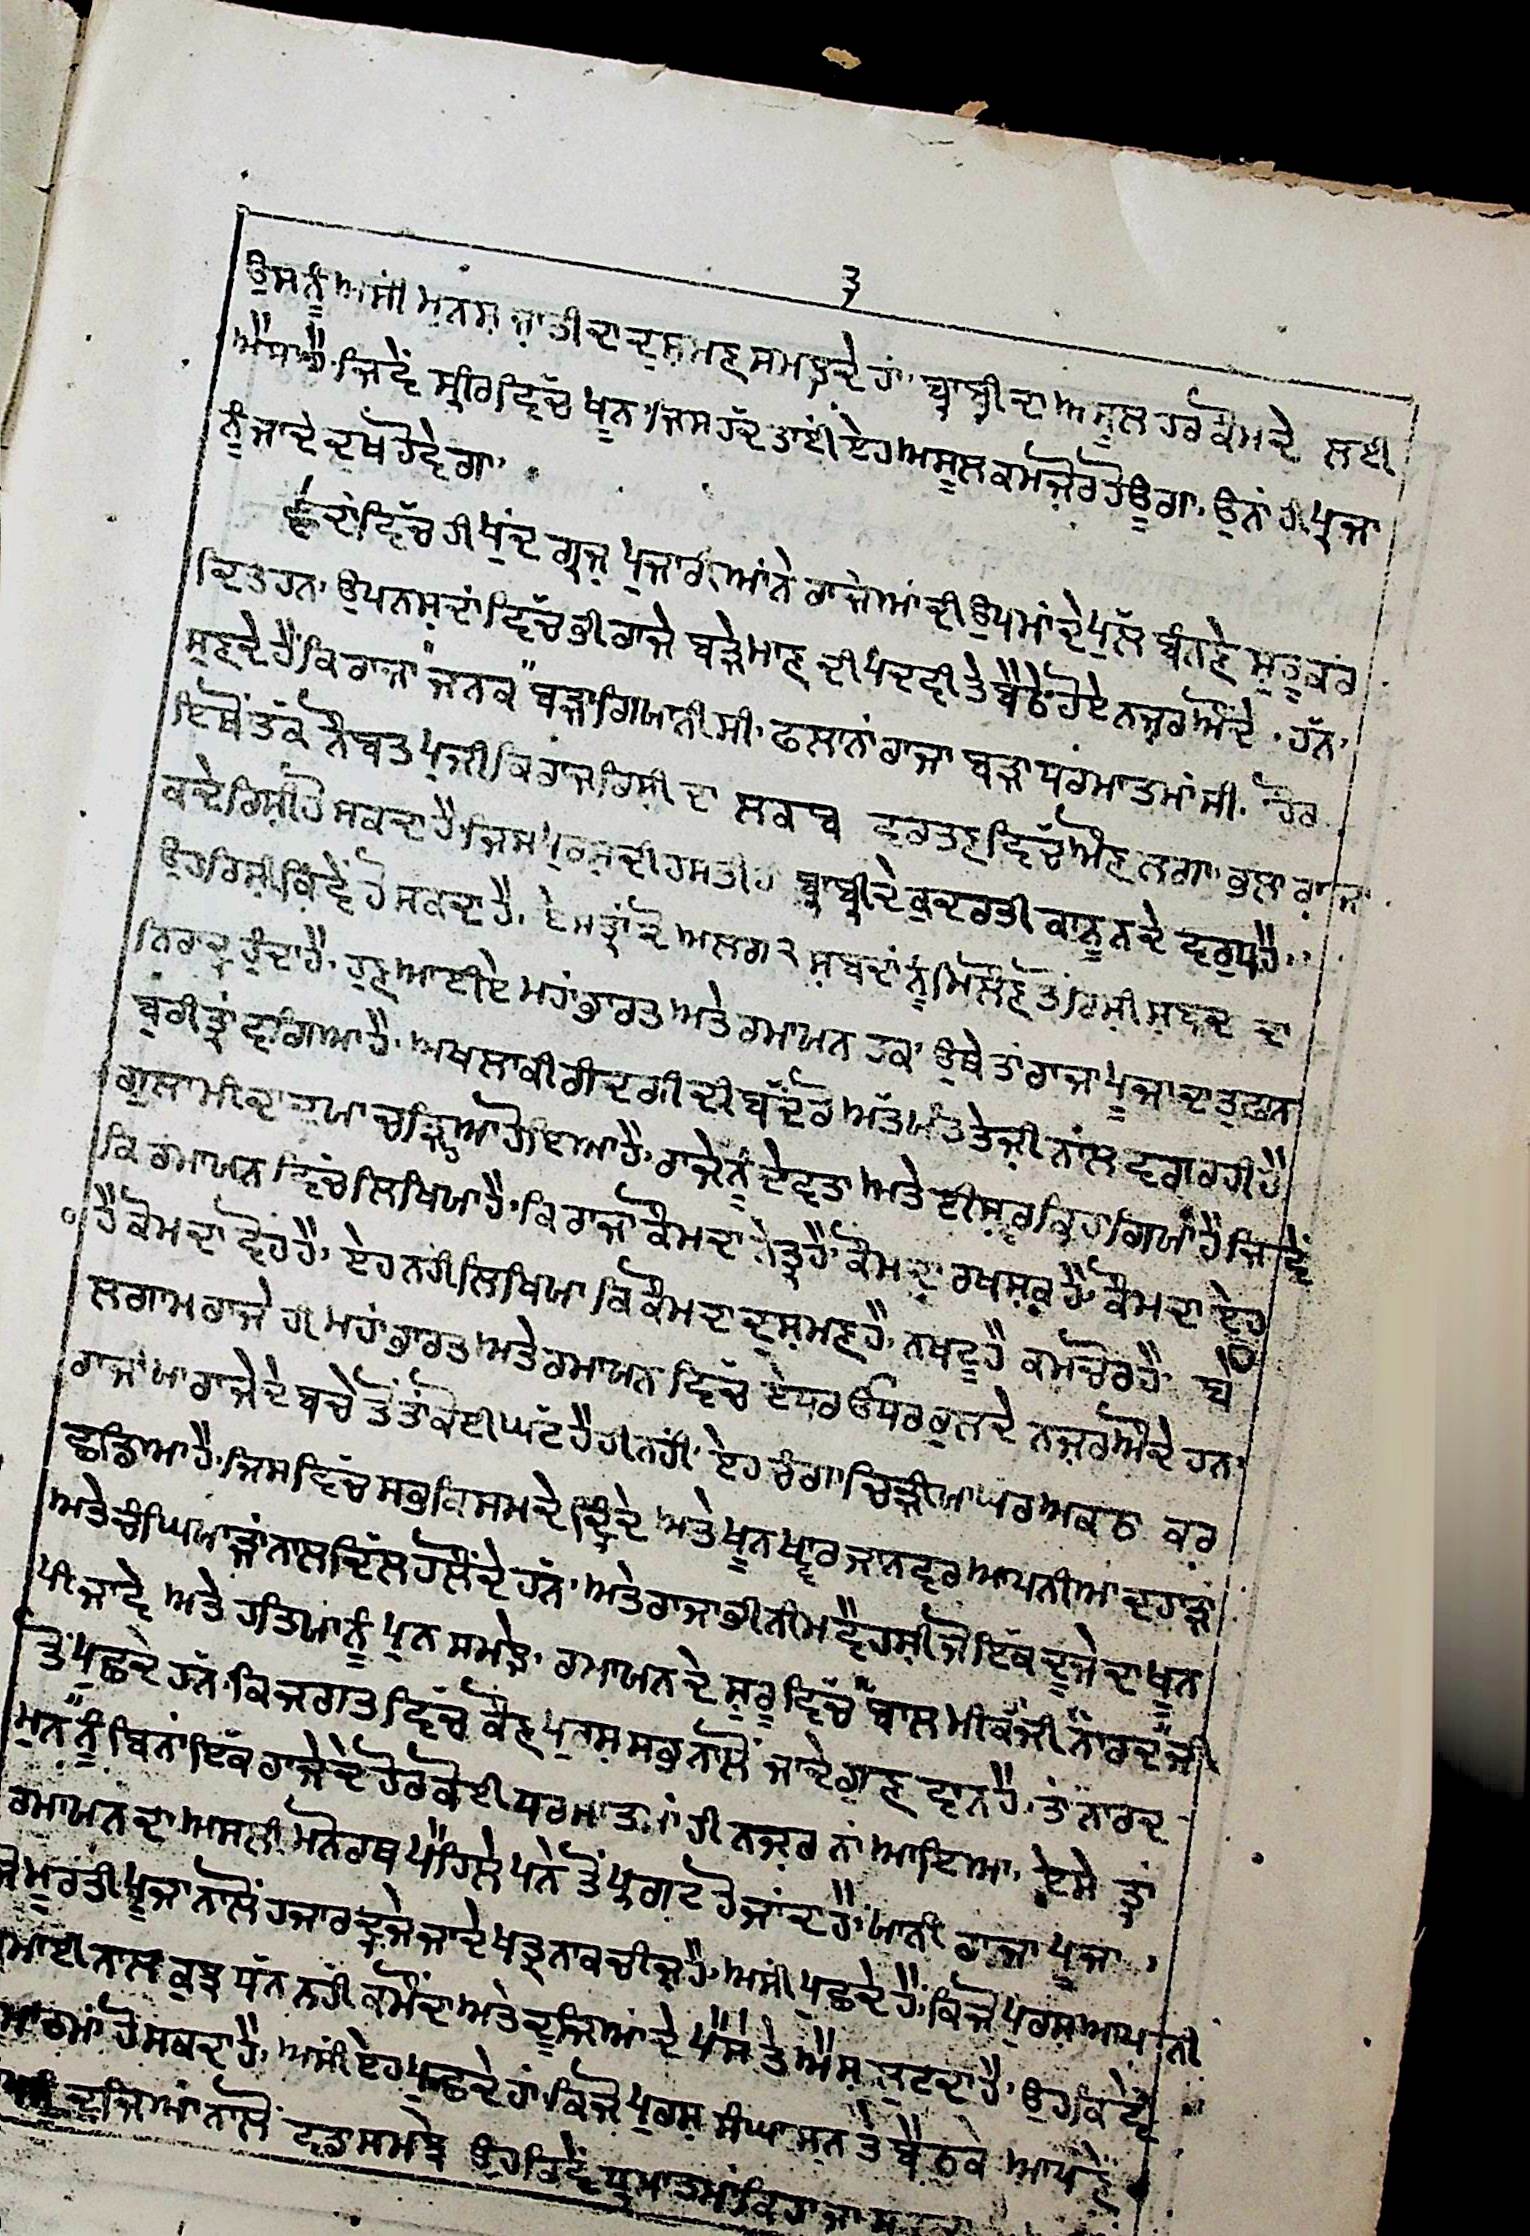 ੩
ਉਸਨੂੰ ਅਸੀਂ ਮਨੁਸ਼ ਜ਼ਾਤੀ ਦਾ ਦੁਸ਼ਮਣ ਸਮਝਦੇ ਹਾਂ, ਬ੍ਰਾਬ੍ਰੀ ਦਾ ਅਸੂਲ ਹਰ ਕੌਮ ਦੇ ਲਈ
ਐਸਾ ਹੈ. ਜਿਵੇਂ ਸ੍ਰੀਰ ਵਿੱਚ ਖੂਨ, ਜਿਸ ਹੱਦ ਤਾਈਂ ਏਹ ਅਸੂਲ ਕਮਜ਼ੋਰ ਹੋਊਗਾ. ਉਨਾਂ ਹੀ ਪ੍ਰਜਾ
ਨੂੰ ਜ਼ਾਦੇ ਦੁਖ ਹੋਵੇਗਾ,
ਵੇਦਾਂ ਵਿੱਚ ਹੀ ਖੁਦ ਗ੍ਰਜ਼ ਪੁਜਾਰੀਆਂ ਨੇ ਰਾਜਿਆਂ ਦੀ ਉਪਮਾਂ ਦੇ ਪੁੱਲ ਬੰਨਣੇ ਸ਼ੁਰੂ ਕਰ
ਦਿਤੇ ਹਨ, ਉਪਨਸ਼ਦਾਂ ਵਿੱਚ ਭੀ ਰਾਜੇ ਬੜੇ ਮਾਣ ਦੀ ਪਦਵੀ ਤੇ ਬੈਠੇ ਹੋਏ ਨਜ਼ਰ ਔਂਦੇ . ਹੱਨ,
ਸੁਣਦੇ ਹੈਂ ਕਿ ਰਾਜਾ "ਜਨਕ" ਬੜਾ ਗਿਯਾਨੀ ਸੀ. ਫਲਾਨਾਂ ਰਾਜਾ ਬੜਾ ਧਰਮਾਤਮਾਂ ਸੀ. ਹੋਰ
ਇਥੋਂ ਤੱਕ ਨੌਬਤ ਪੁਜੀ ਕਿ ਰਾਜ ਰਿਸ਼ੀ ਦਾ ਲਕਬ ਵਰਤਣ ਵਿੱਚ ਔਣ ਲਗਾ, ਭਲਾ ਰਾਜਾ
ਕਦੇ ਰਿਸ਼ੀ ਹੋ ਸਕਦਾ ਹੈ, ਜਿਸ ਪੁਰਸ਼ ਦੀ ਹਸਤੀ ਹੀ ਬ੍ਰਾਬ੍ਰੀ ਦੇ ਕੁਦਰਤੀ ਕਾਨੂਨ ਦੇ ਵਰੁਧ ਹੈ,
ਉਹ ਰਿਸ਼ੀ ਕਿਵੇਂ ਹੋ ਸਕਦਾ ਹੈ, ਏਸ ਤ੍ਰਾਂ ਦੋ ਅਲਗ ੨ ਸ਼ਬਦਾਂ ਨੂੰ ਮਿਲੌਣ ਤੋਂ ਰਿਸ਼ੀ ਸ਼ਬਦ ਦਾ
ਨਿਰਾਦ੍ਰ ਹੁੰਦਾ ਹੈ, ਹੁਣ ਆਈਏ ਮਹਾਂ ਭਾਰਤ ਅਤੇ ਰਮਾਯਨ ਤਕ, ਉਥੇ ਤਾਂ ਰਾਜਾ ਪੂਜਾ ਦਾ ਤੁਫਾਨ
ਬੁਰੀ ਤ੍ਰਾਂ ਵਗਿਆ ਹੈ, ਅਖਲਾਕੀ ਗੰਦਗੀ ਦੀ ਬੱਦਰੋ ਅੱਤਯੰਤ ਤੇਜ਼ੀ ਨਾਲ ਵਗ ਰਹੀ ਹੈ
ਗੁਲਾਮੀ ਦਾ ਦਯਾ ਚੜ੍ਹਿਆ ਹੋਇਆ ਹੈ, ਰਾਜੇ ਨੂੰ ਦੇਵਤਾ ਅਤੇ ਈਸ਼ਰ ਕਿਹਾ ਗਿਯਾ ਹੈ ਜਿਵੇਂ
ਕਿ ਰਮਾਯਨ ਵਿੱਚ ਲਿਖਿਯਾ ਹੈ. ਕਿ ਰਾਜਾ ਕੌਮ ਦਾ ਨੇਤ੍ਰ ਹੈ, ਕੌਮ ਦਾ ਰਖਸ਼ਕ ਹੈ, ਕੌਮ ਦਾ ਏਹ
ਹੈ ਕੌਮ ਦਾ ਵੋਹ ਹੈ, ਏਹ ਨਹੀਂ ਲਿਖਿਯਾ ਕਿ ਕੌਮ ਦਾ ਦੁਸ਼ਮਣ ਹੈ, ਨਖਟੂ ਹੈ ਕਮਚੋਰ ਹੈ, ਬੇ
ਲਗਾਮ ਰਾਜੇ ਹੀ ਮਹਾਂ ਭਾਰਤ ਅਤੇ ਰਮਾਯਨ ਵਿੱਚ ਏਧਰ ਓਧਰ ਰੁਲਦੇ ਨਜ਼ਰ ਔਂਦੇ ਹਨ,
ਰਾਜੇ ਯਾ ਰਾਜੇ ਦੇ ਬਚੇ ਤੋਂ ਤਾਂ ਕੋਈ ਘੱਟ ਹੈ ਹੀ ਨਹੀਂ, ਏਹ ਚੰਗਾ ਚਿੜੀਯਾ ਘਰ ਅਕਠ ਕਰ
ਛਡਿਆ ਹੈ. ਜਿਸ ਵਿੱਚ ਸਭ ਕਿਸਮ ਦੇ ਦ੍ਰਿੰਦੇ ਅਤੇ ਖੂਨਖ੍ਵਾਰ ਜਾਨਵਰ ਆਪਨੀਆਂ ਦਹਾੜਾਂ
ਅਤੇ ਚੰਘਿਯਾੜਾਂ ਨਾਲ ਦਿੱਲ ਹਲੌਂਦੇ ਹੱਨ, ਅਤੇ ਰਾਜਾ ਭੀ ਨੀਮ ਵੈਹਸ਼ੀ ਜੋ ਇੱਕ ਦੂਜੇ ਦਾ ਖੂਨ
ਪੀ ਜਾਵੇ ਅਤੇ ਹਤਿਯਾ ਨੂੰ ਪੁਨ ਸਮਝੇ, ਰਮਾਯਨ ਦੇ ਸ਼ੁਰੂ ਵਿੱਚ "ਬਾਲ ਮੀਕ" ਜੀ "ਨਾਰਦ" ਜੀ
ਤੋਂ ਪੁਛਦੇ ਹੱਨ. ਕਿ ਜਗਤ ਵਿੱਚ ਕੌਣ ਪੁਰਸ਼ ਸਭ ਨਾਲੋਂ ਜ਼ਾਦੇ ਗੁਣ ਵਾਨ ਹੈ, ਤਾਂ ਨਾਰਦ
ਮੁਨ" ਨੂੰ ਬਿਨਾਂ ਇੱਕ ਰਾਜੇ ਦੇ ਹੋਰ ਕੋਈ ਧਰਮਾਤਮਾਂ ਹੀ ਨਜ਼ਰ ਨਾਂ ਆਇਆ, ਏਸੇ ਤ੍ਰਾਂ
ਰਮਾਯਨ ਦਾ ਅਸਲੀ ਮਨੋਰਥ ਪੈਹਿਲੇ ਪਨੇ ਤੋਂ ਪ੍ਰਗਟ ਹੋ ਜਾਂਦਾ ਹੈ, ਯਾਨੀ ਰਾਜਾ ਪੂਜਾ,
ਜੋ ਮੂਰਤੀ ਪੂਜਾ ਨਾਲੋਂ ਹਜਾਰ ਦ੍ਰਜੇ ਜ਼ਾਦੇ ਖਤ੍ਰਨਾਕ ਚੀਜ਼ ਹੈ, ਅਸੀਂ ਪੁਛਦੇ ਹੈਂ, ਕਿ ਜੋ ਪੁਰਸ਼ ਆਪਨੀ
ਕਮਾਈ ਨਾਲ ਕੁਝ ਧੱਨ ਨਹੀਂ ਕਮੌਂਦਾ ਅਤੇ ਦੂਜਿਆਂ ਦੇ ਪੈਸੇ ਤੇ ਐਸ਼ ਲੁਟਦਾ ਹੈ, ਉਹ ਕਿਵੇਂ
ਹੋ ਸਕਦਾ ਹੈ, ਅਸੀਂ ਏਹ ਪੁਛਦੇ ਹਾਂ, ਕਿ ਜੋ ਪੁਰਸ਼ ਸੰਘਾਸ਼ਨ ਤੇ ਬੈਠਕੇ ਆਪਣੇ
ਦੂਜਿਆਂ ਨਾਲੋਂ ਵਡਾ ਸਮਝੇ ਉਹ ਕਿਵੇਂ